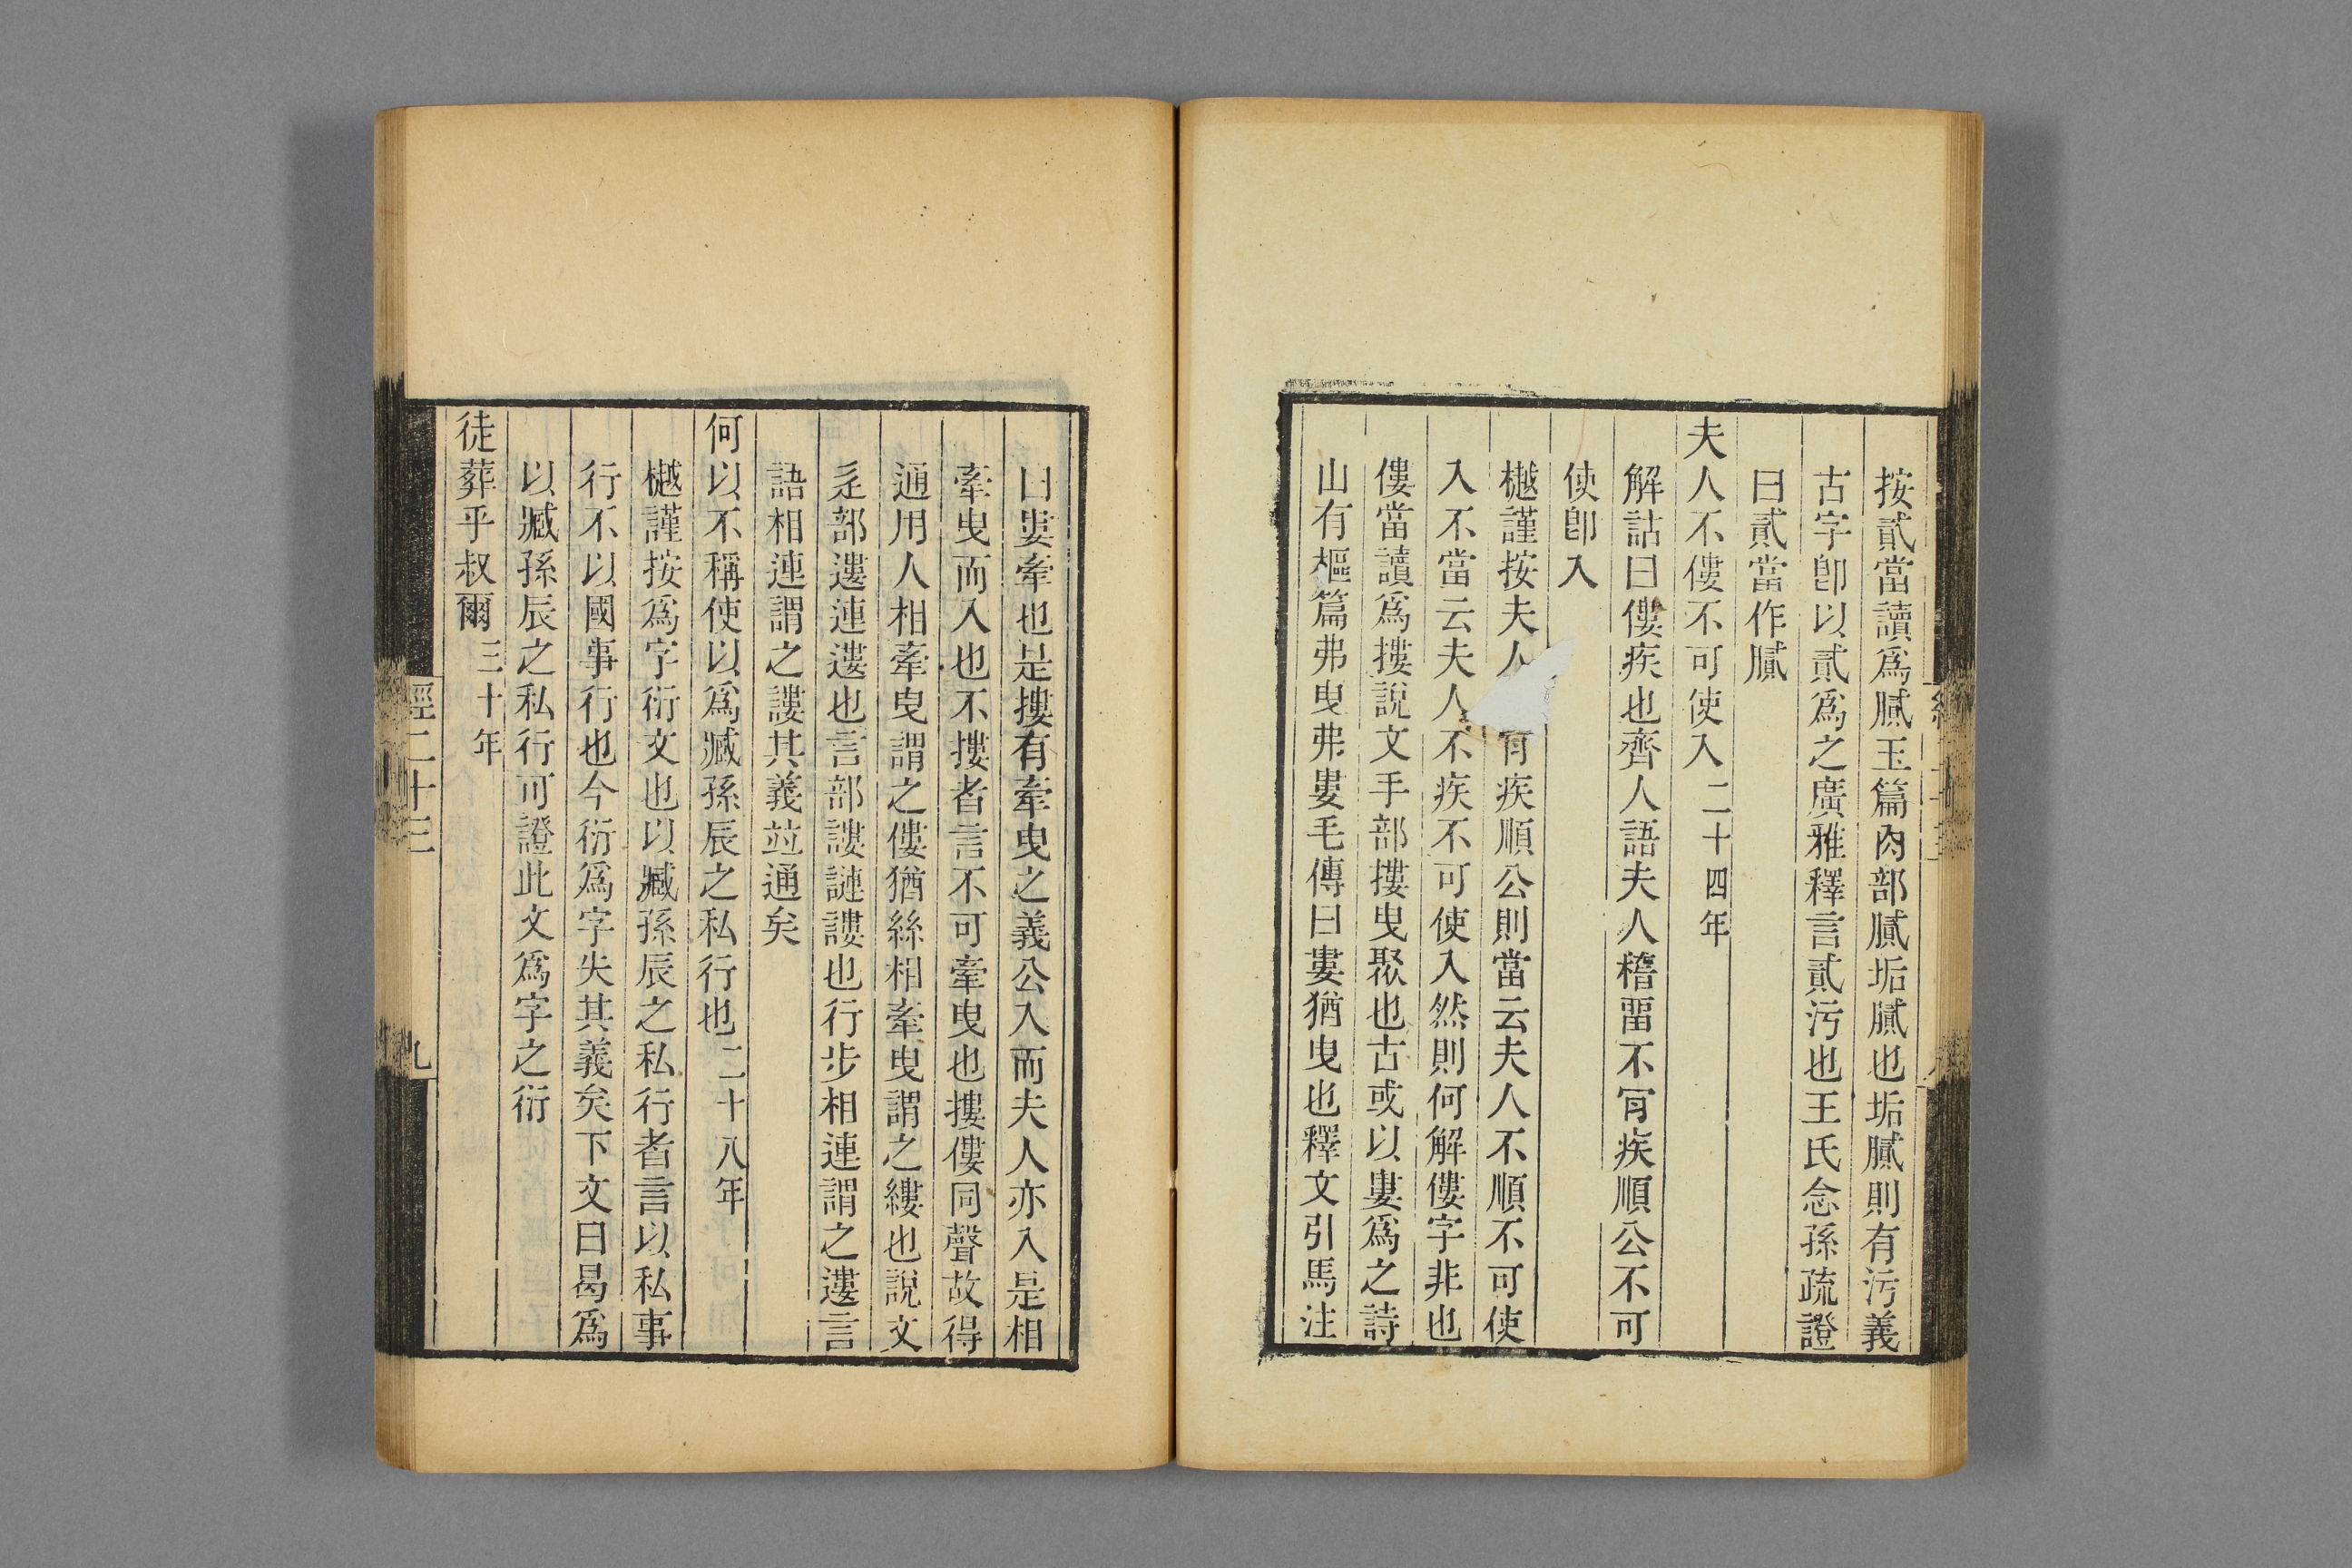 按貳當讀爲膩玉篇肉部膩垢膩也垢膩則有污義
古字卽以貳爲之廣雅釋言貳污也王氏念孫疏證
曰貳當作膩
夫人不僂不可使入二十四年
解詁曰僂疾也齊人語夫人稽畱不肎疾順公不可
使卽入
樾謹按夫人肎疾順公則當云夫人不順不可使
入不當云夫人不疾不可使入然則何解僂字非也
僂當讀爲摟說文手部摟曳聚也古或以婁爲之詩
山有樞篇弗曳弗婁毛傳曰婁猶曳也釋文引馬注
曰婁牽也是摟有牽曳之義公入而夫人亦入是相
牽曳而入也不摟者言不可牽曳也摟僂同聲故得
通用人相牽曳謂之僂猶絲相牽曳謂之縷也說文
辵部遱連遱也言部謱謰謱也行步相連謂之遱言
語相連謂之謱其義竝通矣
何以不稱使以爲臧孫辰之私行也二十八年
樾謹按爲字衍文也以臧孫辰之私行者言以私事
行不以國事行也今衍爲字失其義矣下文曰曷爲
以臧孫辰之私行可證此文爲字之衍
徒葬乎叔爾三十年
經二十三
九